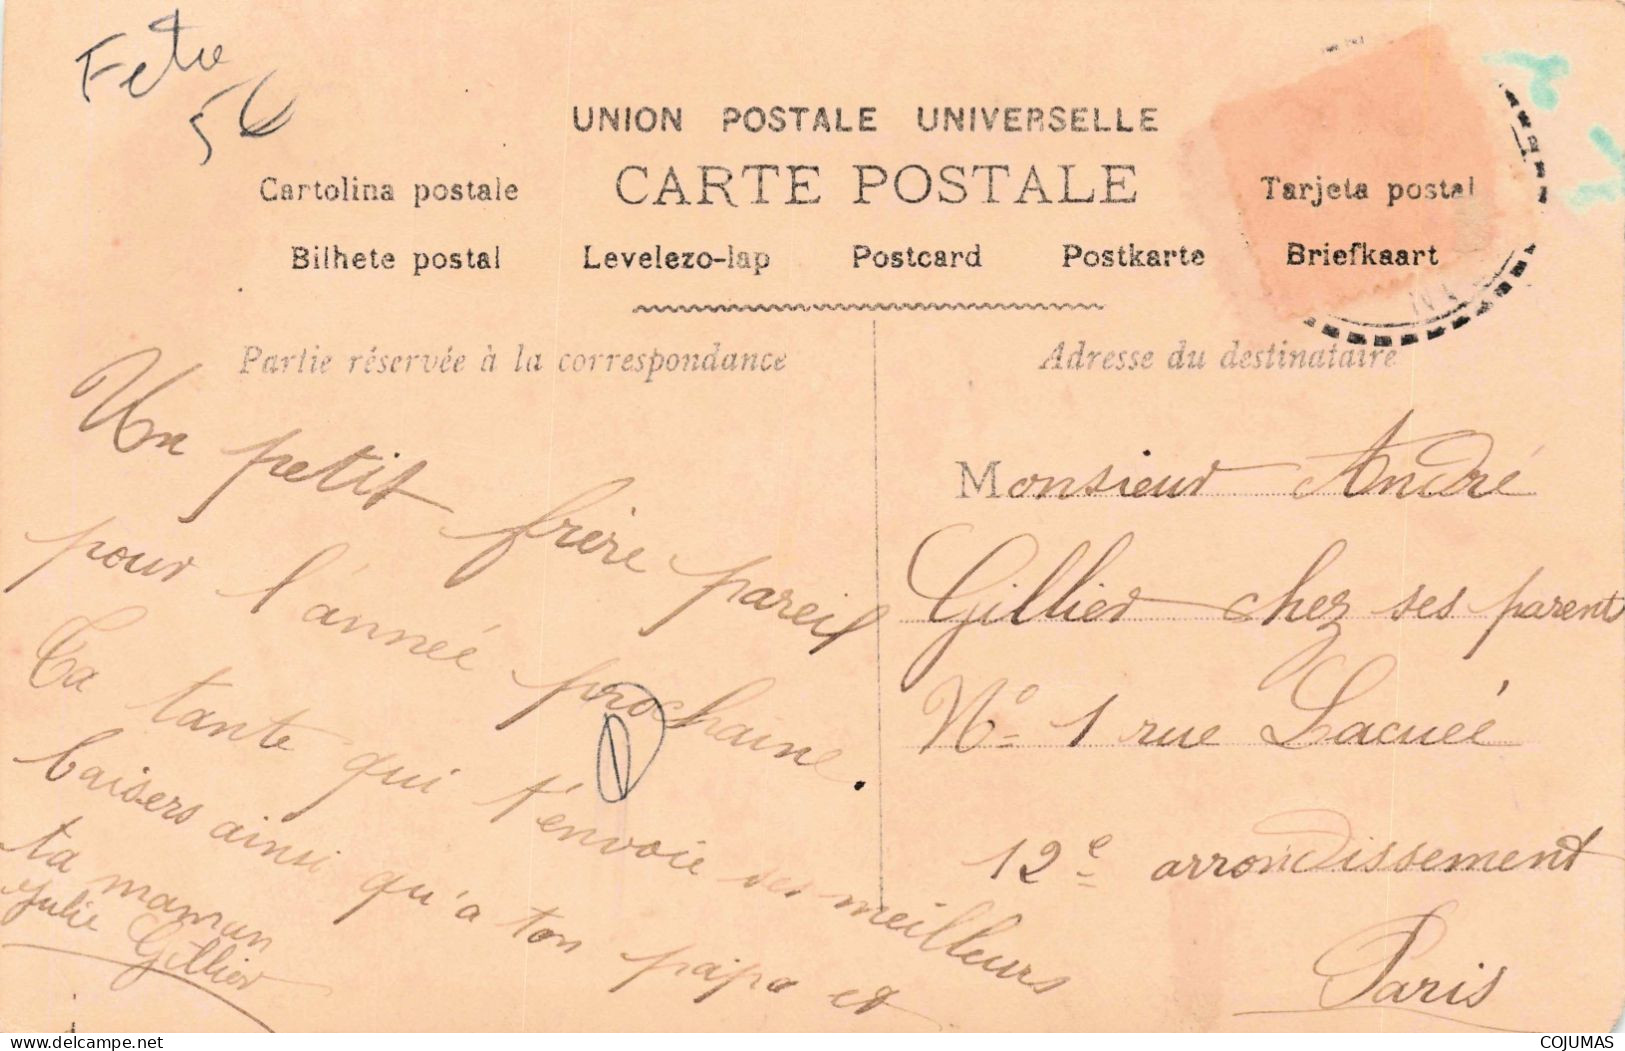 Fete
56
UNION POSTALE UNIVERSELLE
CARTE POSTALE
Cartolina postale
Tarjeta postal
Bilhete postal Levelezo-lap Postcard Postkarte Briefkaart
Partie réservée à la correspondance
Un petit frère pareil
pour l'année prochaine.
Ta tante qui t'envoie ses meilleurs
baisers ainsi qu'a ton papa et
ta maman
Julie Gillier
Adresse du destinataire
Monsieur André
Gillier chez ses parents
N° 1 rue Lacuée
12e arrondissement
Paris
COJUMAS